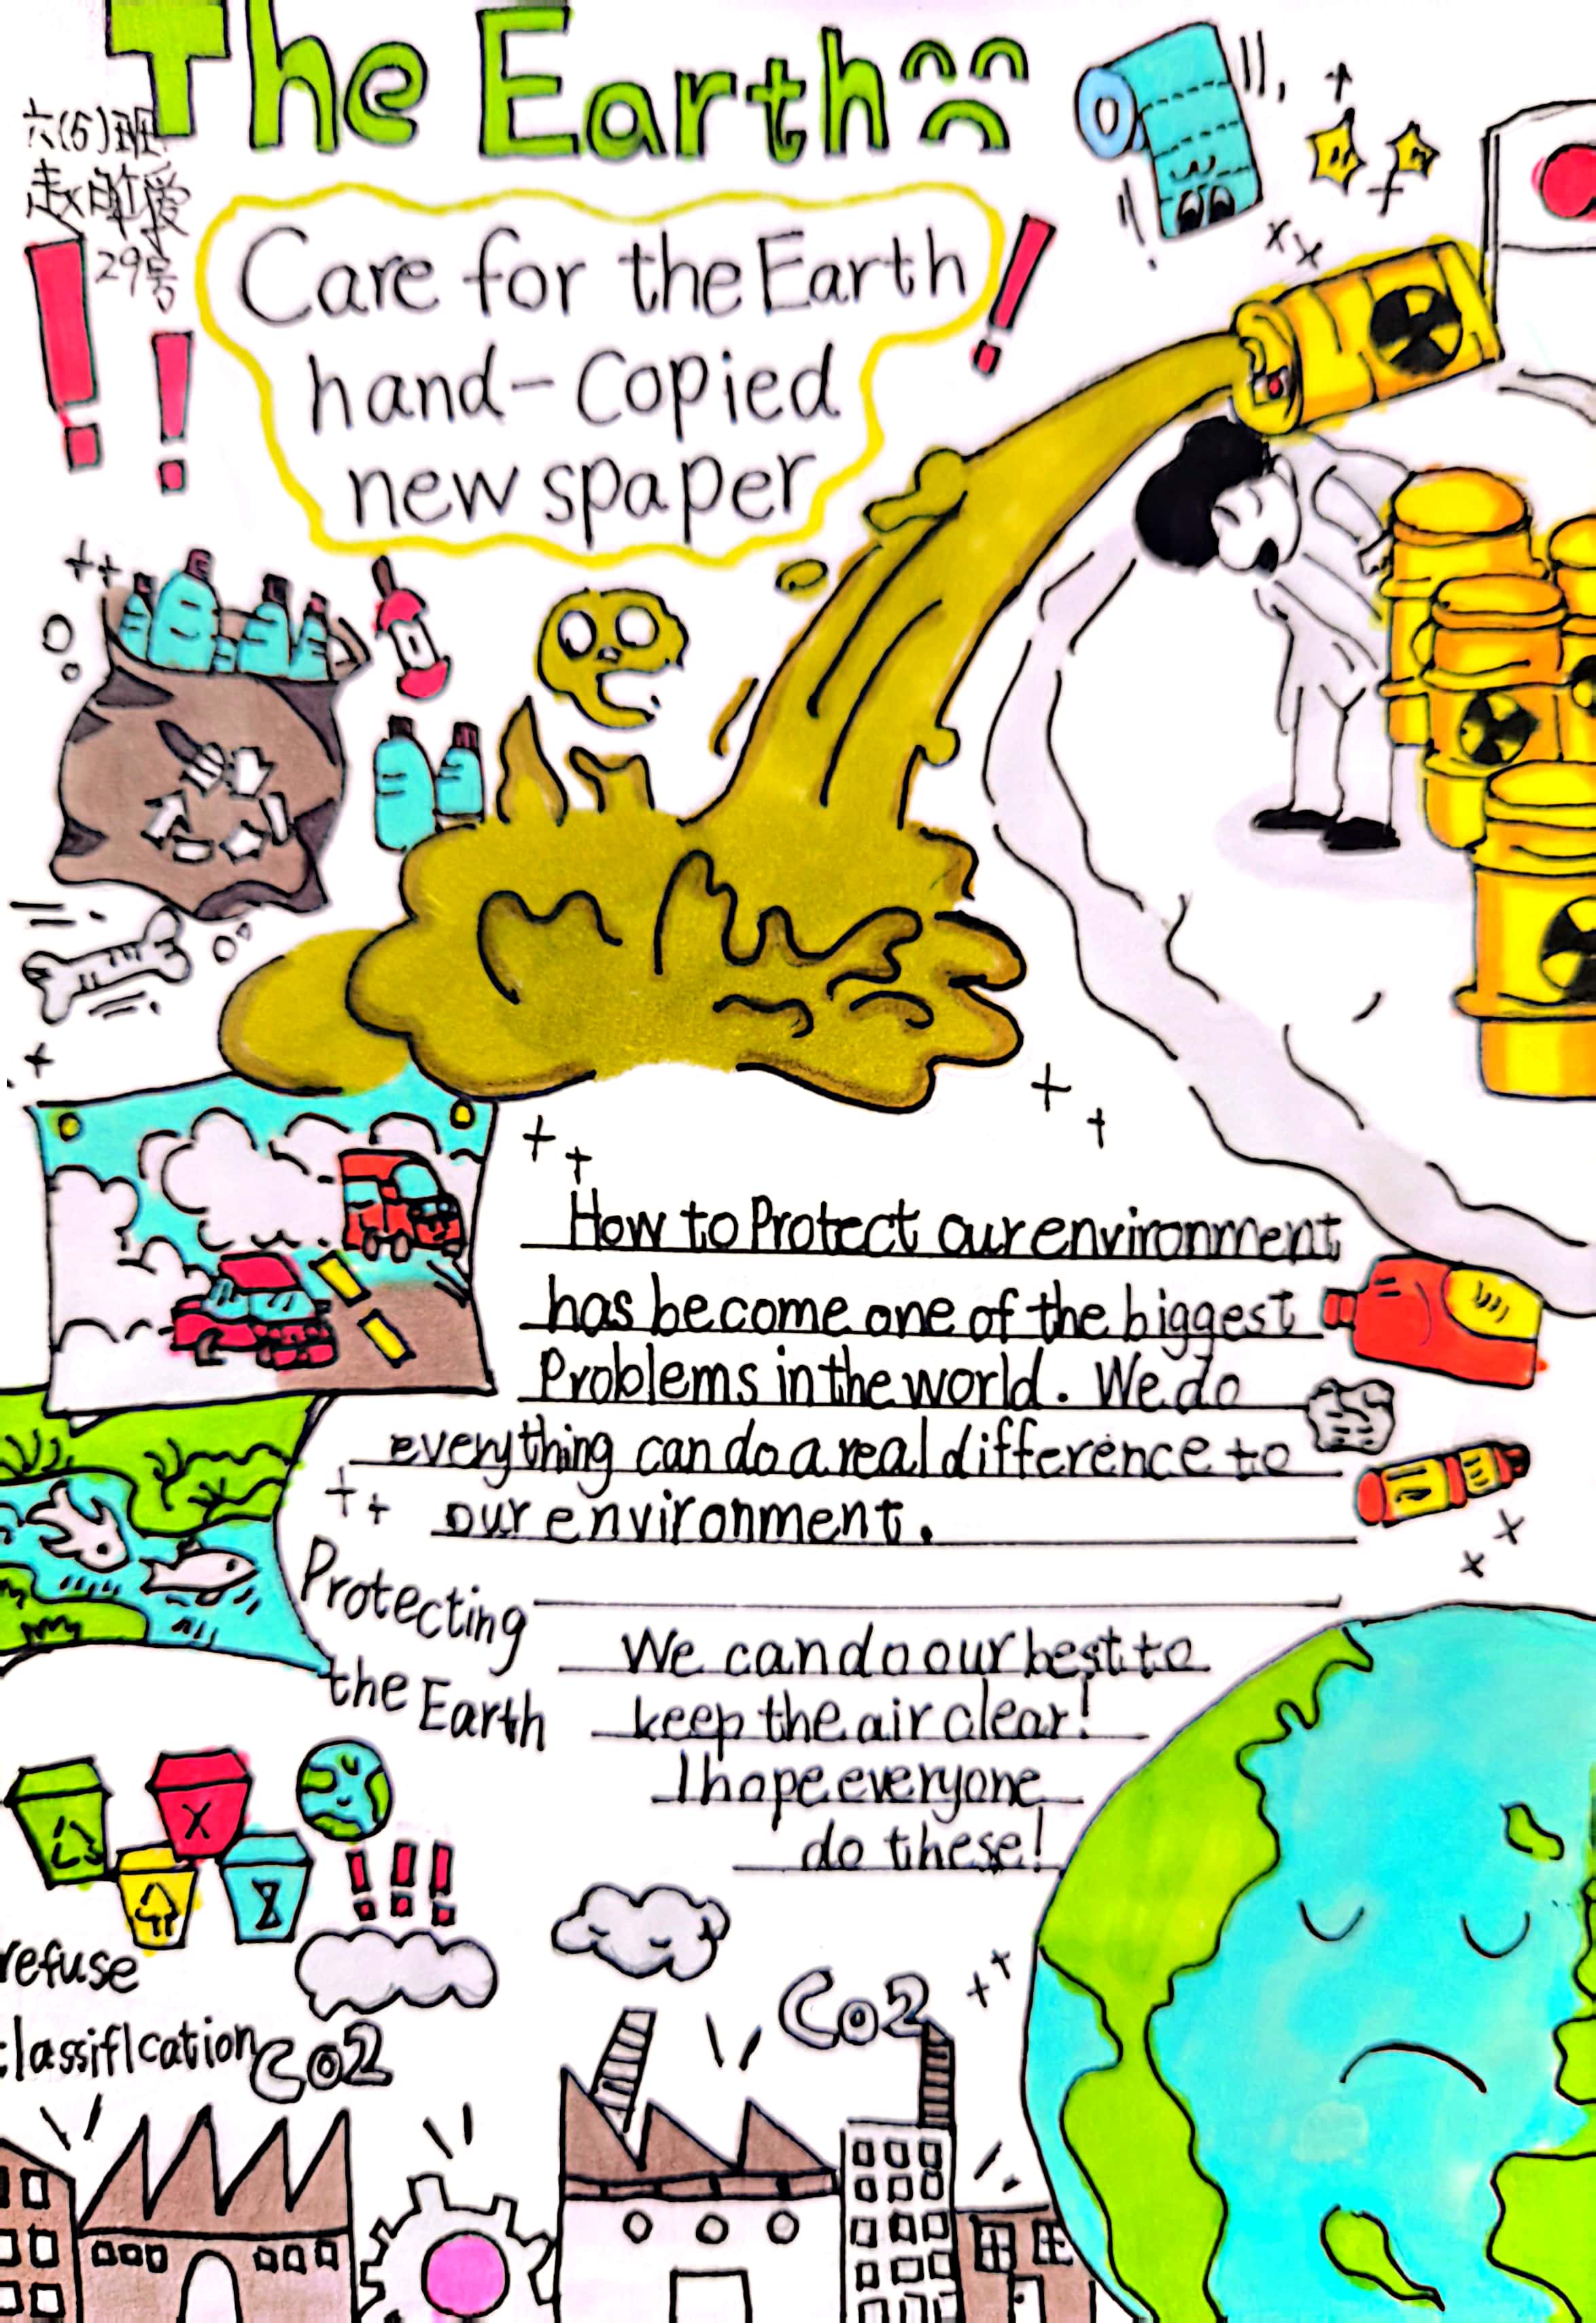 The Earth
六(5)班
29号
Care for the Earth
hand-Copied
newspaper
How to Protect our environment
has become one of the biggest
Problems in the world. We do
everything can do a real difference to
our environment.
Protecting
the Earth
We can do our best to
keep the air clear!
I hope everyone
do these!
refuse
classification
Co2
Co2